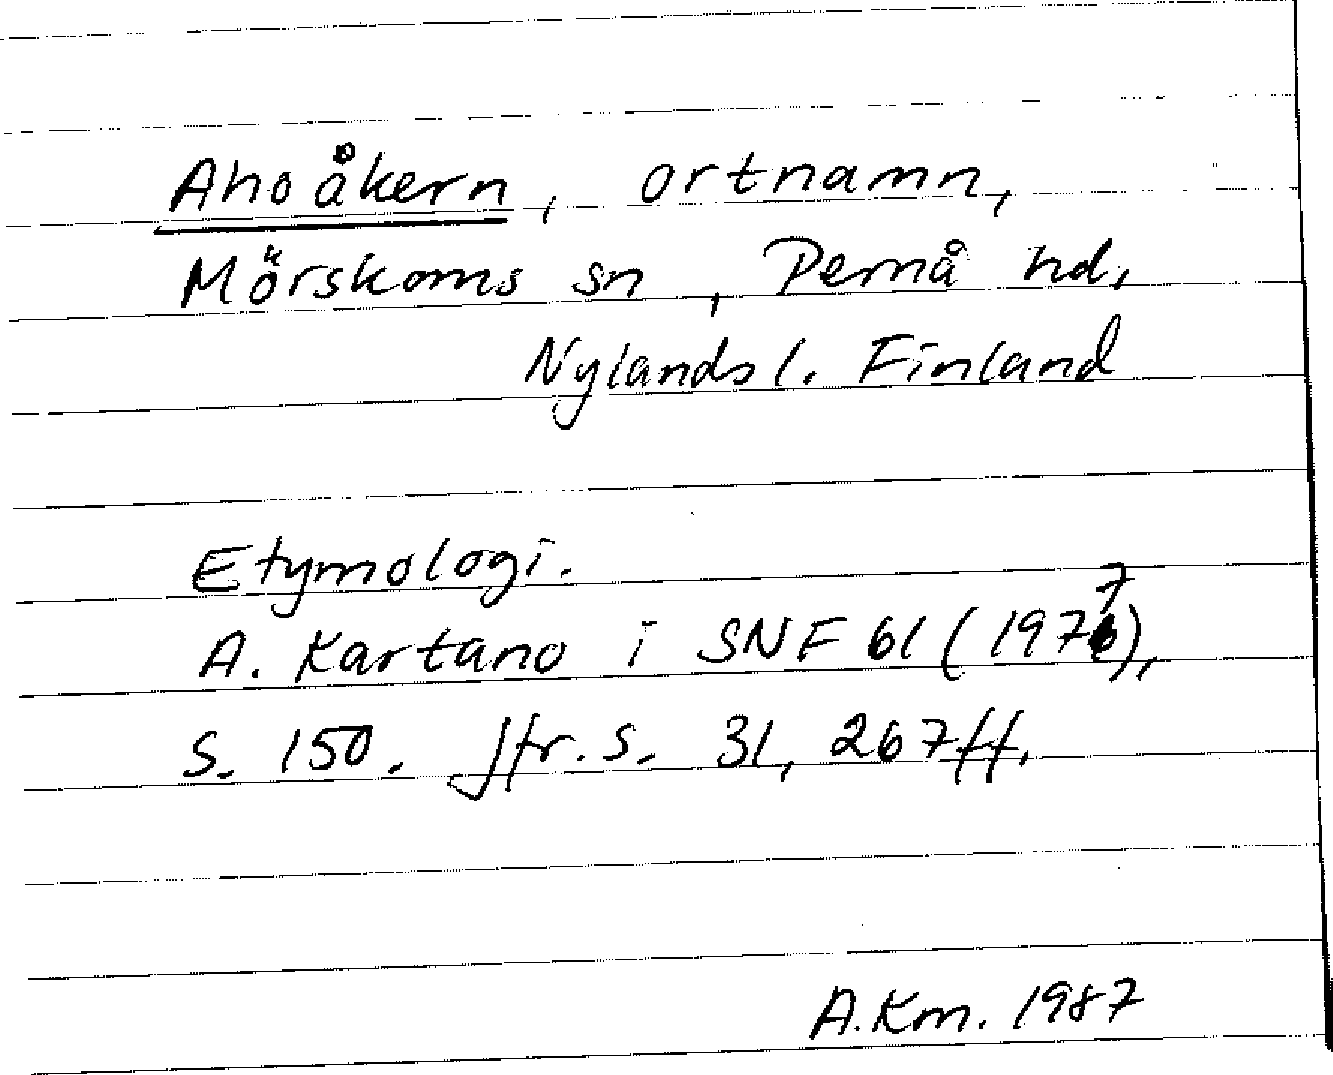 Ahoåkern, ortnamn,
Mörskoms sn, Pernå hd,
Nylands l. Finland
Etymologi.
A. Kartano i SNF 61 (1977),
s. 150. Jfr. s. 31, 267ff.
A.Km. 1987